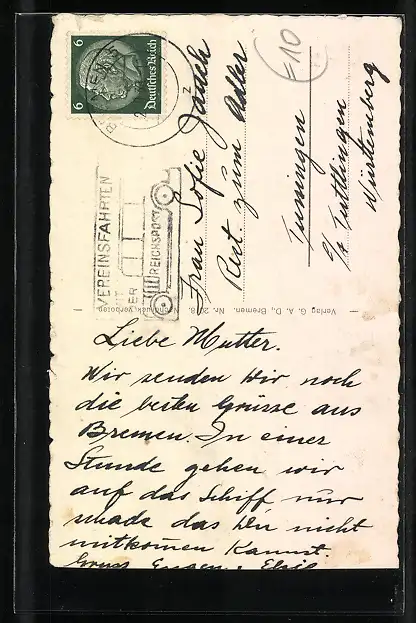 6 6
Deutsches Reich
BREMEN 5
VEREINSFAHRTEN
MIT
DER REICHSPOST
10
Frau Sofie Jauch
Rest. zum Adler
Tuningen
b/ Tuttlingen
Würtemberg
Verlag G. A. D., Bremen. Nr. 20/8. Nachdruck verboten
Liebe Mutter.
Wir senden Dir noch
die besten Grüsse aus
Bremen. In einer
Stunde gehen wir
auf das Schiff nur
schade das Du nicht
mitkommen kannst.
Gruss Eugen u. Elsie